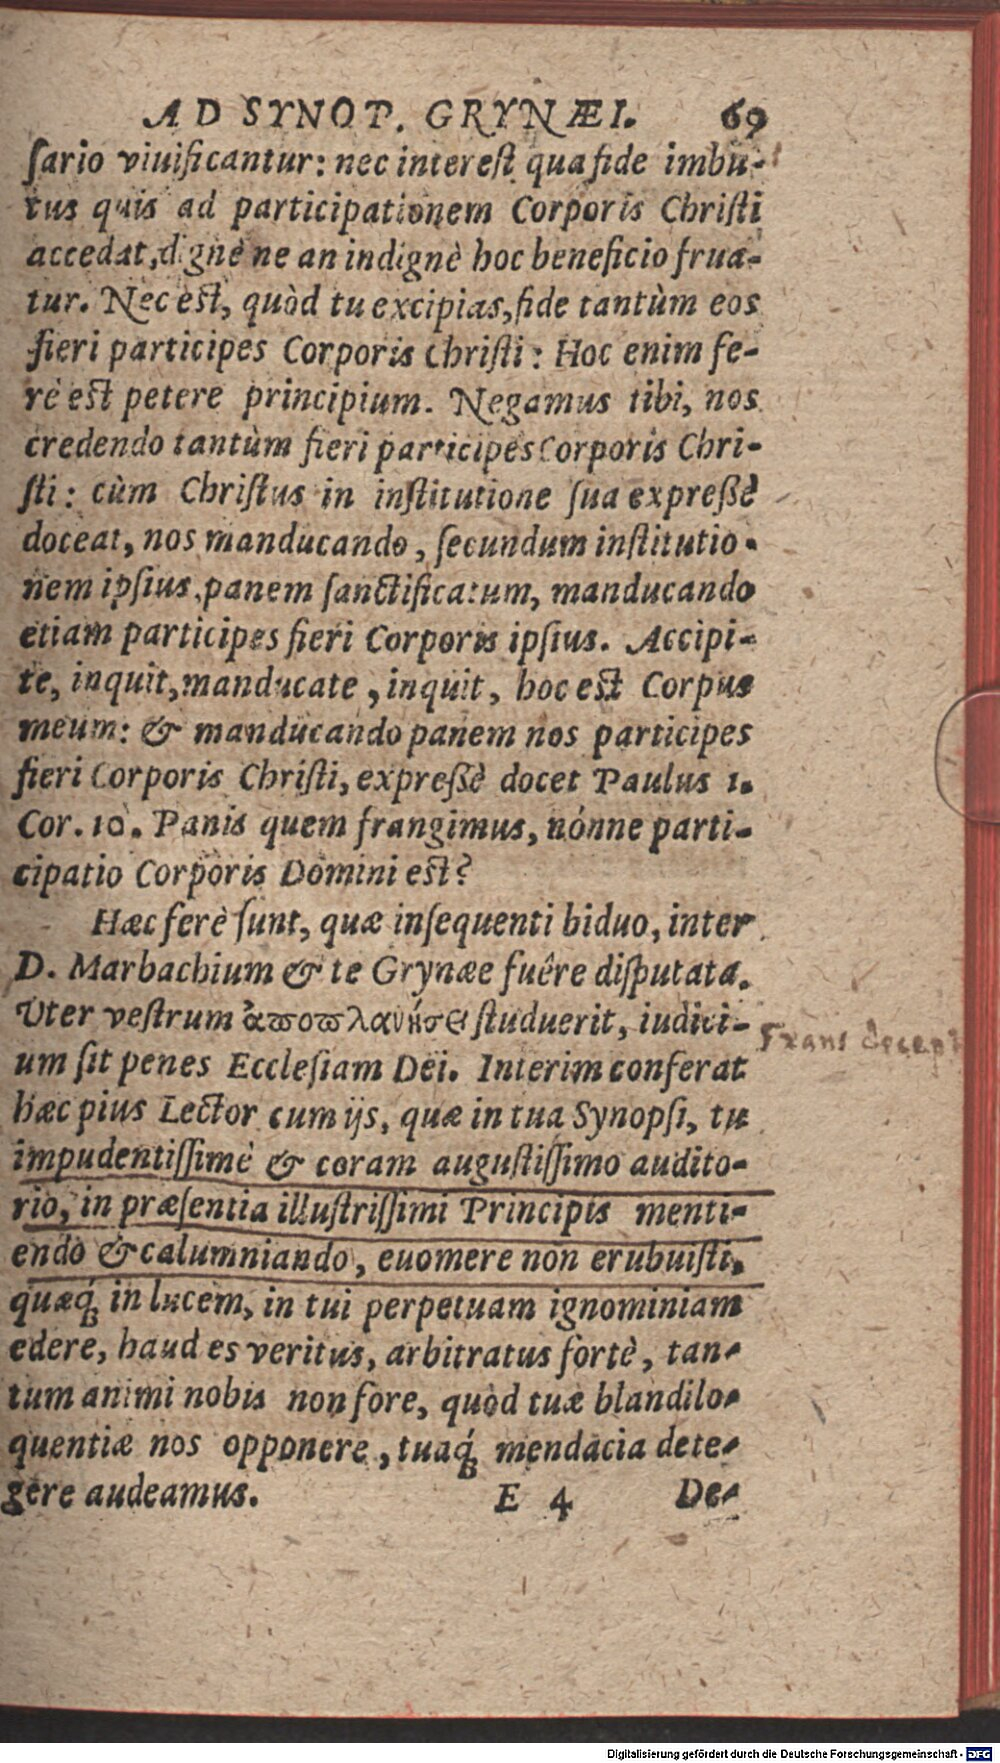 AD SYNOP. GRYNÆI. 69
ſario viuificantur: nec intereſt qua fide imbu-
tus quis ad participationem Corporis Chriſti
accedat, dignè ne an indignè hoc beneficio frua-
tur. Nec eſt, quòd tu excipias, fide tantùm eos
fieri participes Corporis Chriſti: Hoc enim fe-
rè eſt petere principium. Negamus tibi, nos
credendo tantùm fieri participes Corporis Chri-
ſti: cùm Chriſtus in inſtitutione ſua expreßè
doceat, nos manducando, ſecundum inſtitutio-
nem ipſius, panem ſanctificatum, manducando
etiam participes fieri Corporis ipſius. Accipi-
te, inquit, manducate, inquit, hoc eſt Corpus
meum: & manducando panem nos participes
fieri Corporis Chriſti, expreßè docet Paulus 1.
Cor. 10. Panis quem frangimus, nónne parti-
cipatio Corporis Domini eſt?
Hæc ferè ſunt, quæ inſequenti biduo, inter
D. Marbachium & te Grynæe fuêre diſputata.
Vter veſtrum ἀϖοϖλανήσει ſtuduerit, iudici-
um ſit penes Ecclesiam Dei. Interim conferat
hæc pius Lector cum ijs, quæ in tua Synopſi, tu
impudentiſſimè & coram auguſtiſſimo audito-
rio, in præſentia illuſtriſſimi Principis menti-
endo & calumniando, euomere non erubuiſti,
quæq́ꝫ in lucem, in tui perpetuam ignominiam
edere, haud es veritus, arbitratus fortè, tan-
tum animi nobis non fore, quòd tuæ blandilo-
quentiæ nos opponere, tuaq́ꝫ mendacia dete-
gere audeamus. E 4 De-
Digitalisierung gefördert durch die Deutsche Forschungsgemeinschaft - DFG